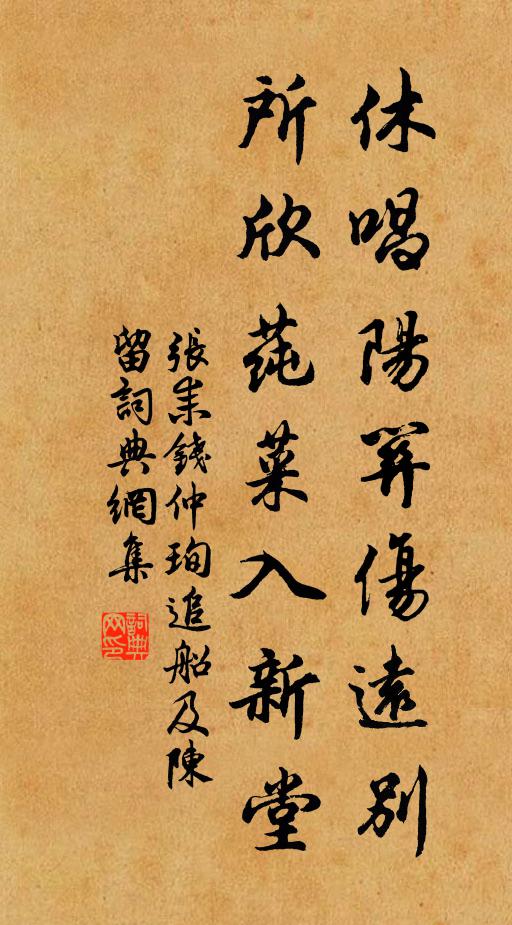 休唱陽關傷遠別
所欣蒓菜入新堂
張耒錢仲珣追船及陳
留詞典網集
詞典
网印